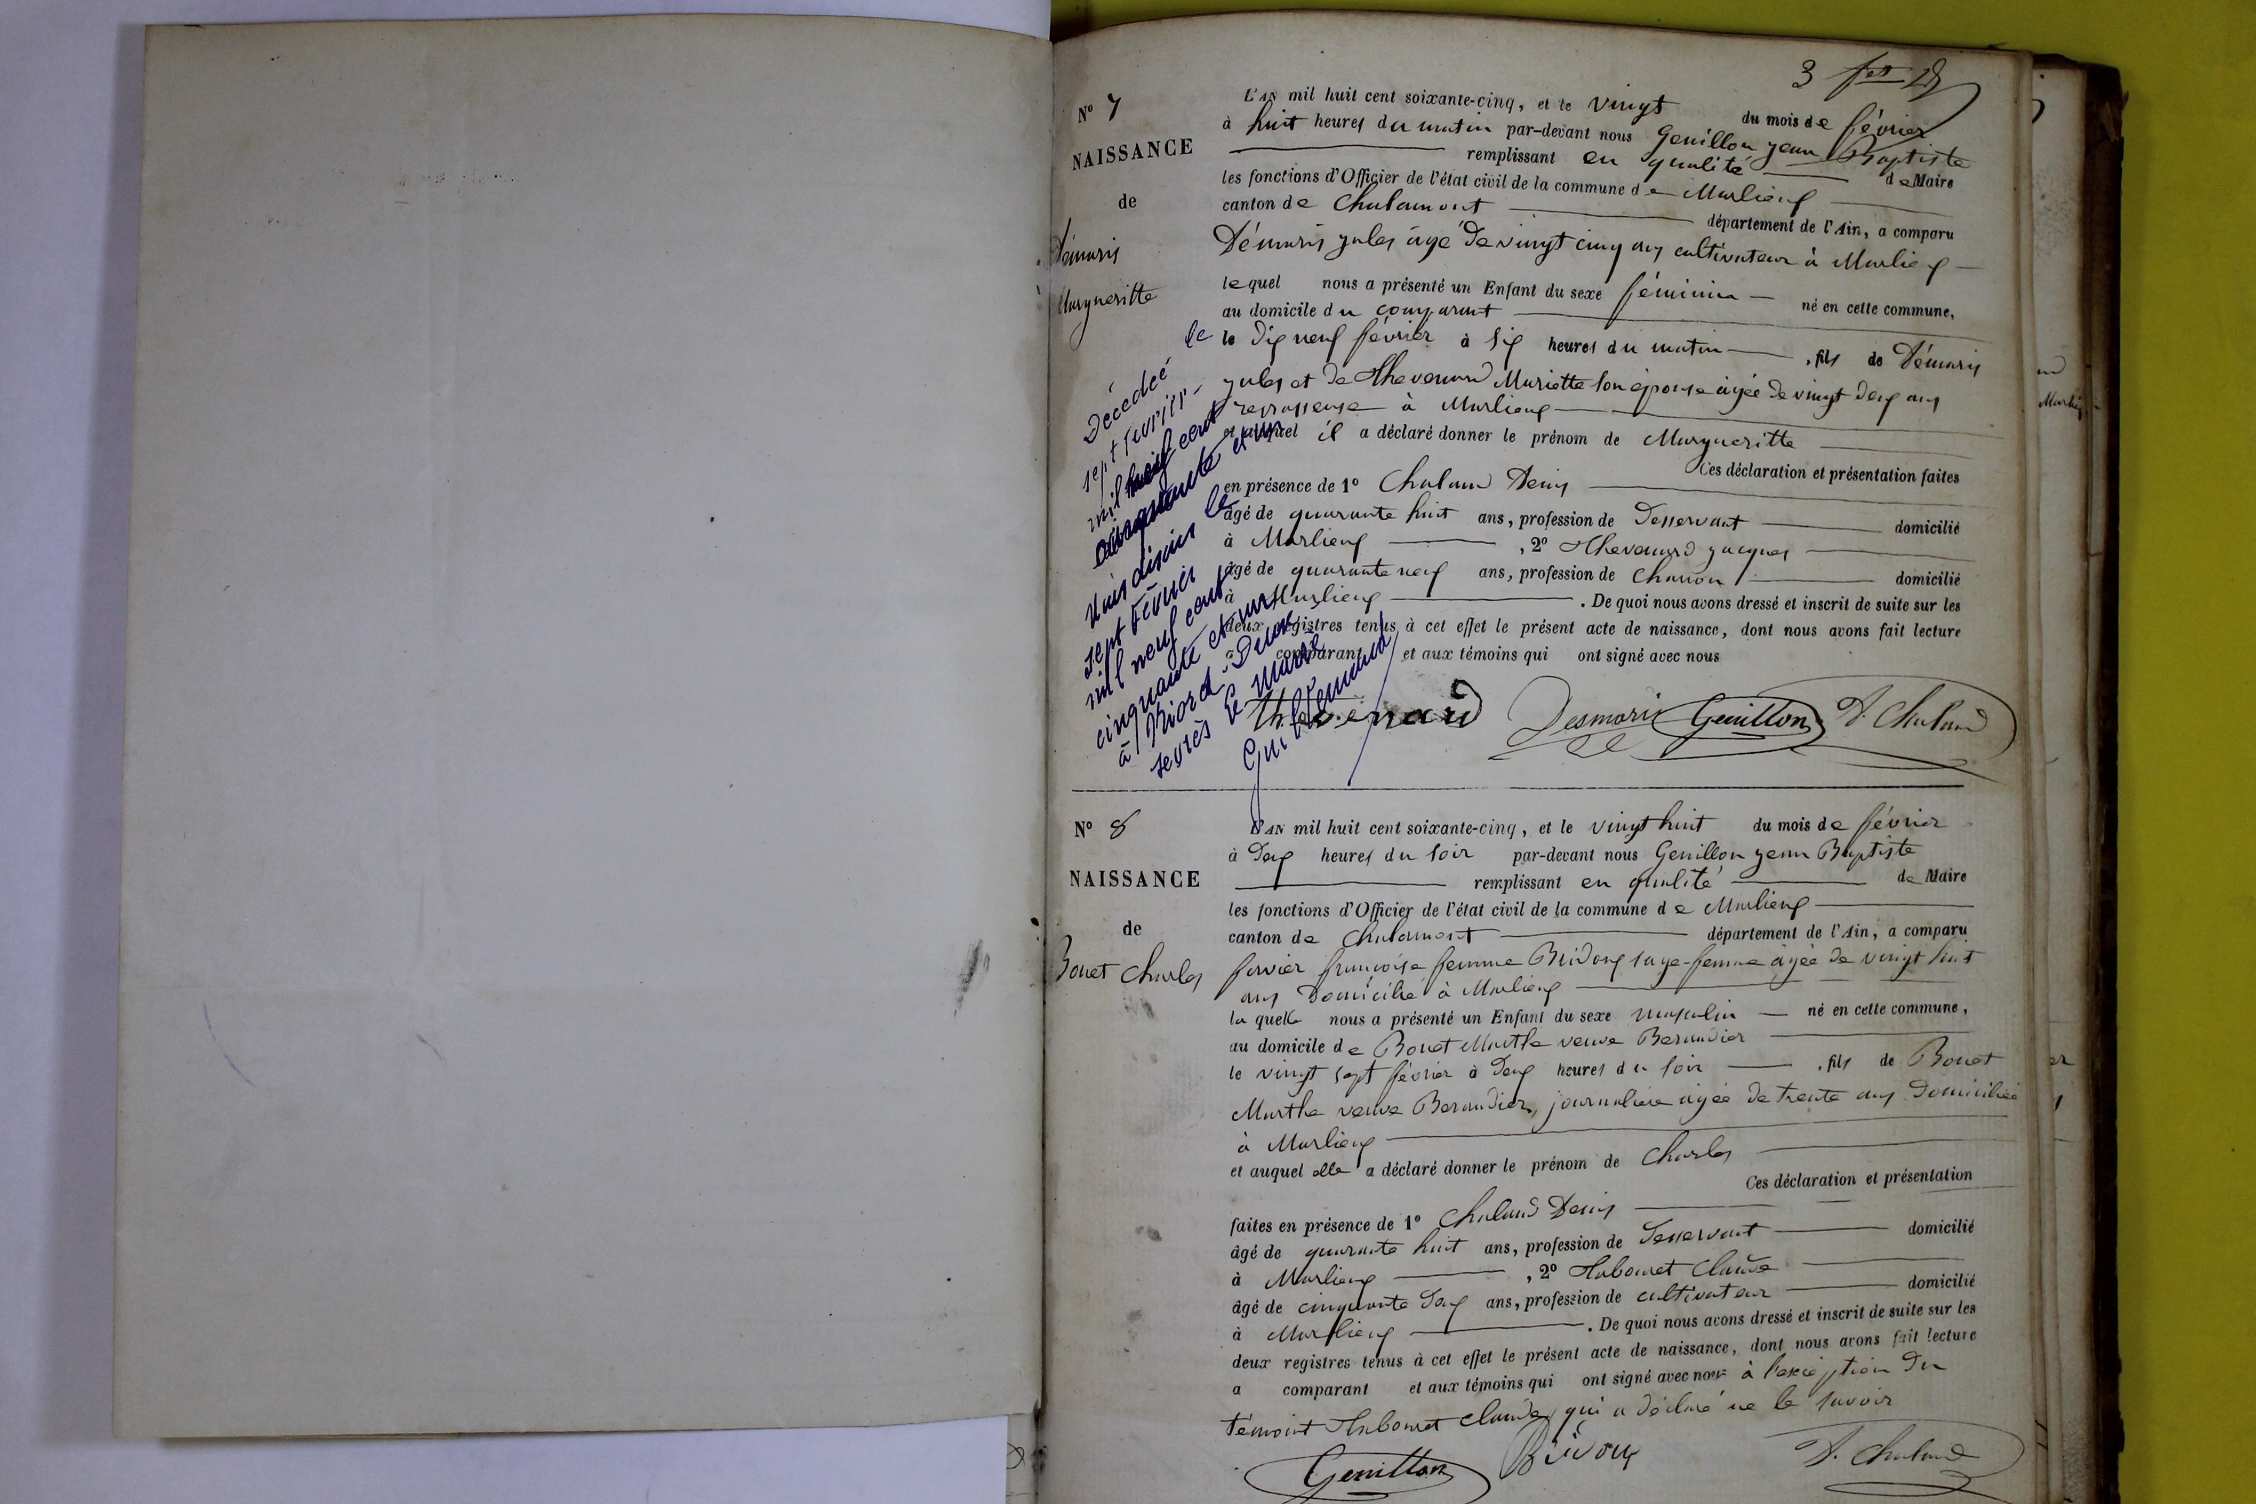 3 fet
N° 7
NAISSANCE
de
Démaris
Margueritte
L'AN mil huit cent soixante-cinq, et le vingt du mois de février
à huit heures du matin par-devant nous Genillon Jean Baptiste
remplissant en qualité de Maire
les fonctions d'Officier de l'état civil de la commune de Marlieux
canton de Chalamont département de l'Ain, a comparu
Démaris Jules âgé de vingt cinq ans cultivateur à Marlieux
lequel nous a présenté un Enfant du sexe féminin né en cette commune,
au domicile du comparant
le dix neuf février à six heures du matin, fils de Démaris
Jules et de Thevenard Mariette son épouse âgée de vingt deux ans
repasseuse à Marlieux
et auquel il a déclaré donner le prénom de Margueritte
Ces déclaration et présentation faites
en présence de 1° Chaland Denis
âgé de quarante huit ans, profession de Desservant domicilié
à Marlieux, 2° Thevenard Jacques
âgé de quarante neuf ans, profession de charron domicilié
à Marlieux. De quoi nous avons dressé et inscrit de suite sur les
deux registres tenus à cet effet le présent acte de naissance, dont nous avons fait lecture
a comparant et aux témoins qui ont signé avec nous
Thevenard Desmaris Genillon D. Chaland
Décédée le
sept février
mil neuf cent
cinquante et un
Nous disons le
sept février
mil neuf cent
cinquante et un
à Niort Deux
sèvres Le Maire
Guillemaud
N° 8
NAISSANCE
de
Bonet Charles
L'AN mil huit cent soixante-cinq, et le vingt huit du mois de février
à deux heures du soir par-devant nous Genillon Jean Baptiste
remplissant en qualité de Maire
les fonctions d'Officier de l'état civil de la commune de Marlieux
canton de Chalamont département de l'Ain, a comparu
fervier françoise femme Bridoux sage-femme âgée de vingt huit
ans Domicilié à Marlieux
la quelle nous a présenté un Enfant du sexe masculin né en cette commune,
au domicile de Bonet Marthe veuve Beraudier
le vingt sept février à deux heures du soir, fils de Bonet
Marthe veuve Beraudier, journalière âgée de trente ans Domiciliée
à Marlieux
et auquel elle a déclaré donner le prénom de Charles
Ces déclaration et présentation
faites en présence de 1° Chaland Denis
âgé de quarante huit ans, profession de Desservant domicilié
à Marlieux, 2° Thabouret Claude
âgé de cinquante deux ans, profession de cultivateur domicilié
à Marlieux. De quoi nous avons dressé et inscrit de suite sur les
deux registres tenus à cet effet le présent acte de naissance, dont nous avons fait lecture
a comparant et aux témoins qui ont signé avec nous à l'exception du
témoint Thabouret Claude qui a déclaré ne le savoir
Genillon Bridoux D. Chaland